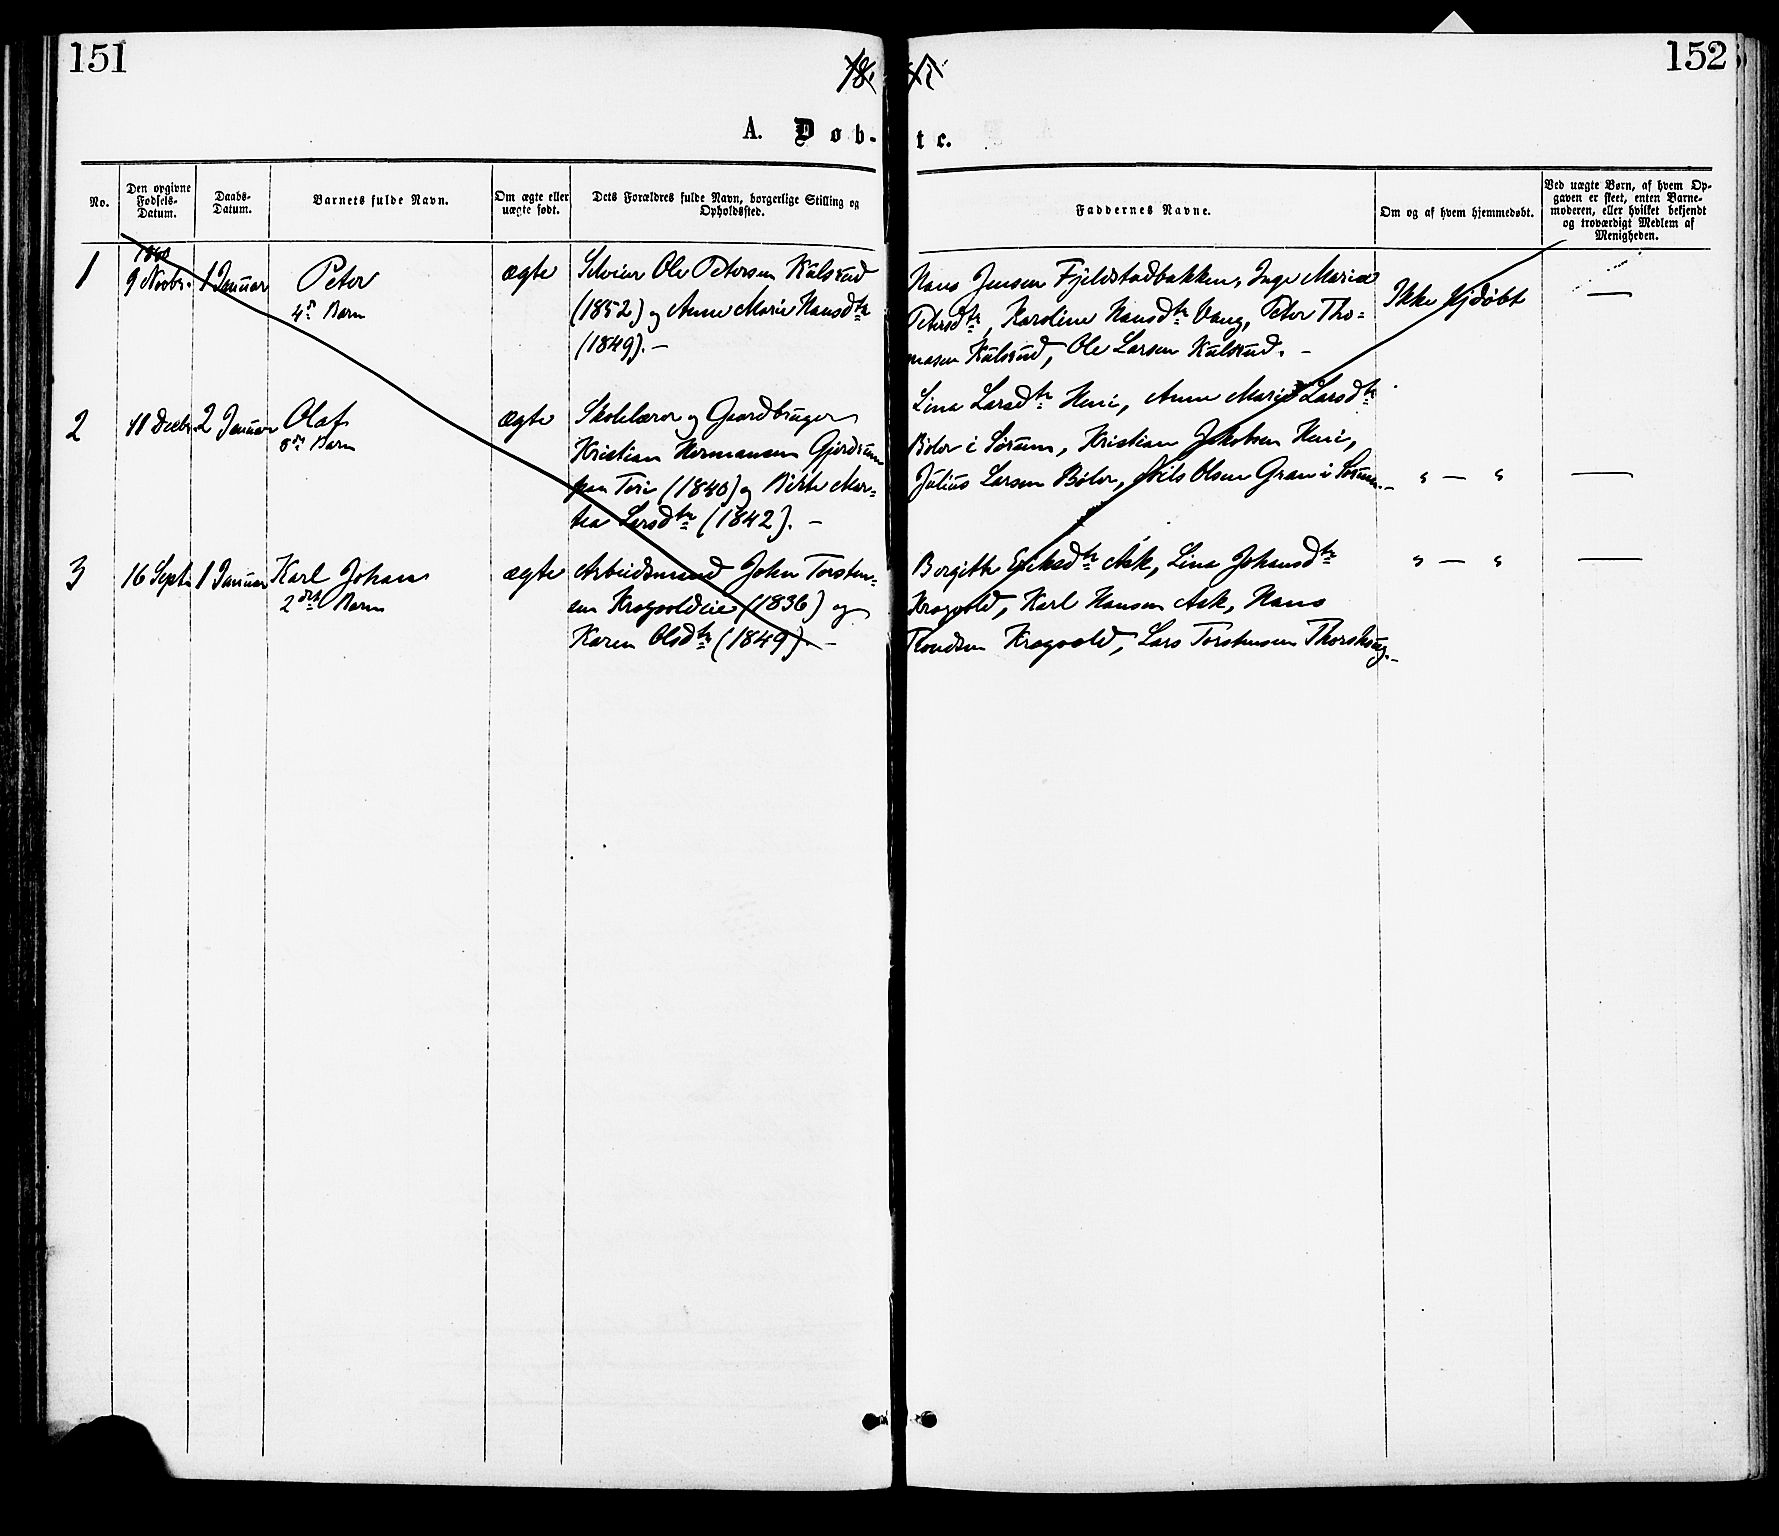 151
152
A. Døb-
te.
No.
Den opgivne Fødsels-Datum.
Daabs-Datum.
Barnets fulde Navn.
Om ægte eller uægte født.
Dets Forældres fulde Navn, borgerlige Stilling og Opholdssted.
Faddernes Navne.
Om og af hvem hjemmedøbt.
Ved uægte Børn, af hvem Op-
gaven er skeet, enten Barne-
moderen, eller hvilket bekjendt
og troværdigt Medlem af
Menigheden.
1
9 Novbr.
1 Januar
Peter
4de Barn
ægte
Selveier Ole Petersen Kulsrud
(1852) og Anne Marie Hansdtr
(1849). –
Hans Jensen Fjeldstadbakken, Inge Maria
Petersdtr, Karoline Hansdtr Vang, Peter Tho-
masen Kulsrud, Ole Larsen Kulsrud. –
Ikke hjdøbt
—
2
Decbr.
2 Januar
Olaf
8de Barn
ægte
Skolelærer og Gaardbruger
Kristian Hermansen Gjerdrum
(1840) og Birthe Mar-
tea Larsdtr (1842). –
Lina Larsdtr Heni, Anne Marie Larsdtr
Bøler i Sørum, Kristian Jakobsen Heni,
Julius Larsen Bøler, Nils Olsen Gran i Sørum. –
" — "
—
3
16 Septr
1 Januar
Karl Johan
2det Barn
ægte
Arbeidsmand John Torsten-
sen Krogvoldeie (1836) og
Karen Olsdtr (1849). –
Borgitte Ask, Lina Johansdtr
Krogvold, Karl Hansen Ask, Hans
Knudsen Krogvold, Lars Torstensen Thorshaug. –
" — "
—